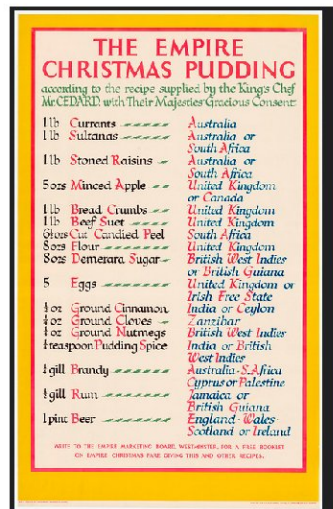 THE EMPIRE
CHRISTMAS PUDDING
according to the recipe supplied by the King's Chef
Mr CEDARD, with Their Majesties Gracious Consent
1 lb Currants Australia
1 lb Sultanas Australia or
South Africa
1 lb Stoned Raisins Australia or
South Africa
5 ozs Minced Apple United Kingdom
or Canada
1 lb Bread Crumbs United Kingdom
1 lb Beef Suet United Kingdom
6½ozs Cut Candied Peel South Africa
8 ozs Flour United Kingdom
8 ozs Demerara Sugar British West Indies
or British Guiana
5 Eggs United Kingdom or
Irish Free State
½ oz Ground Cinnamon India or Ceylon
¼ oz Ground Cloves Zanzibar
¼ oz Ground Nutmegs British West Indies
¼ teaspoon Pudding Spice India or British
West Indies
¼ gill Brandy Australia · S. Africa
Cyprus or Palestine
½ gill Rum Jamaica or
British Guiana
1 pint Beer England · Wales
Scotland or Ireland
WRITE TO THE EMPIRE MARKETING BOARD, WESTMINSTER, FOR A FREE BOOKLET
ON EMPIRE CHRISTMAS FARE GIVING THIS AND OTHER RECIPES.